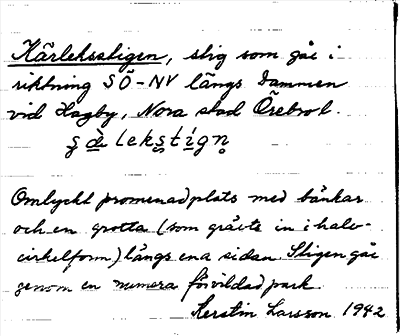 Kärleksstigen, stig som går i
riktning SÖ-NV längs Dammen
vid Hagby, Nora stad Örebro l.
ʂ æ̀ l e k ʂ t í g n̥
Omtyckt promenadplats med bänkar
och en grotta (som grävts in i halv-
cirkelform) längs ena sidan. Stigen går
genom en numera förvildad park.
Kerstin Larsson 1942